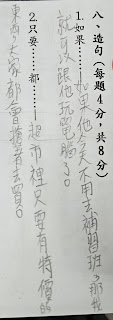 八、造句(每題4分，共8分)
1.如果——如果他今天不用去補習班，那我
就可以跟他玩電腦了。
2.只要……都——超市裡只要有特價的
東西，大家都會搶著去買。